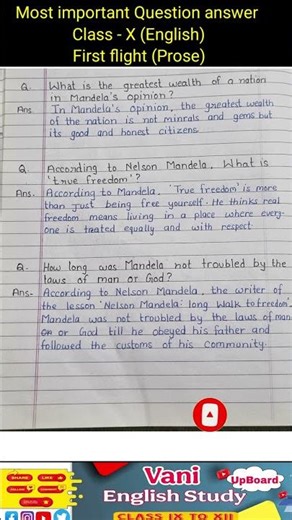 Most important Question answer
Class - X (English)
First flight (Prose)
Q. What is the greatest wealth of a nation
in Mandela's opinion?
Ans In Mandela's opinion, the greated wealth
of the nation is not minrals and gems but
its good and honest citizens.
Q. According to Nelson Mandela, What is
'true freedom'?
Ans. According to Mandela, 'True freedom' is more
than just being free yourself. He thinks real
freedom means living in a place where every-
one is trated equally and with respect
Q. How long was Mandela not troubled by the
laws of man or God?
Ans- According to Nelson Mandela, the writer of
the lesson 'Nelson Mandela: long walk to fredom',
Mandela was not troubled by the laws of man
or God till he obeyed his father and
followed the customs of his Community.
SHARE LIKE
Vani
UpBoard
English Study
CLASS IX TO XII